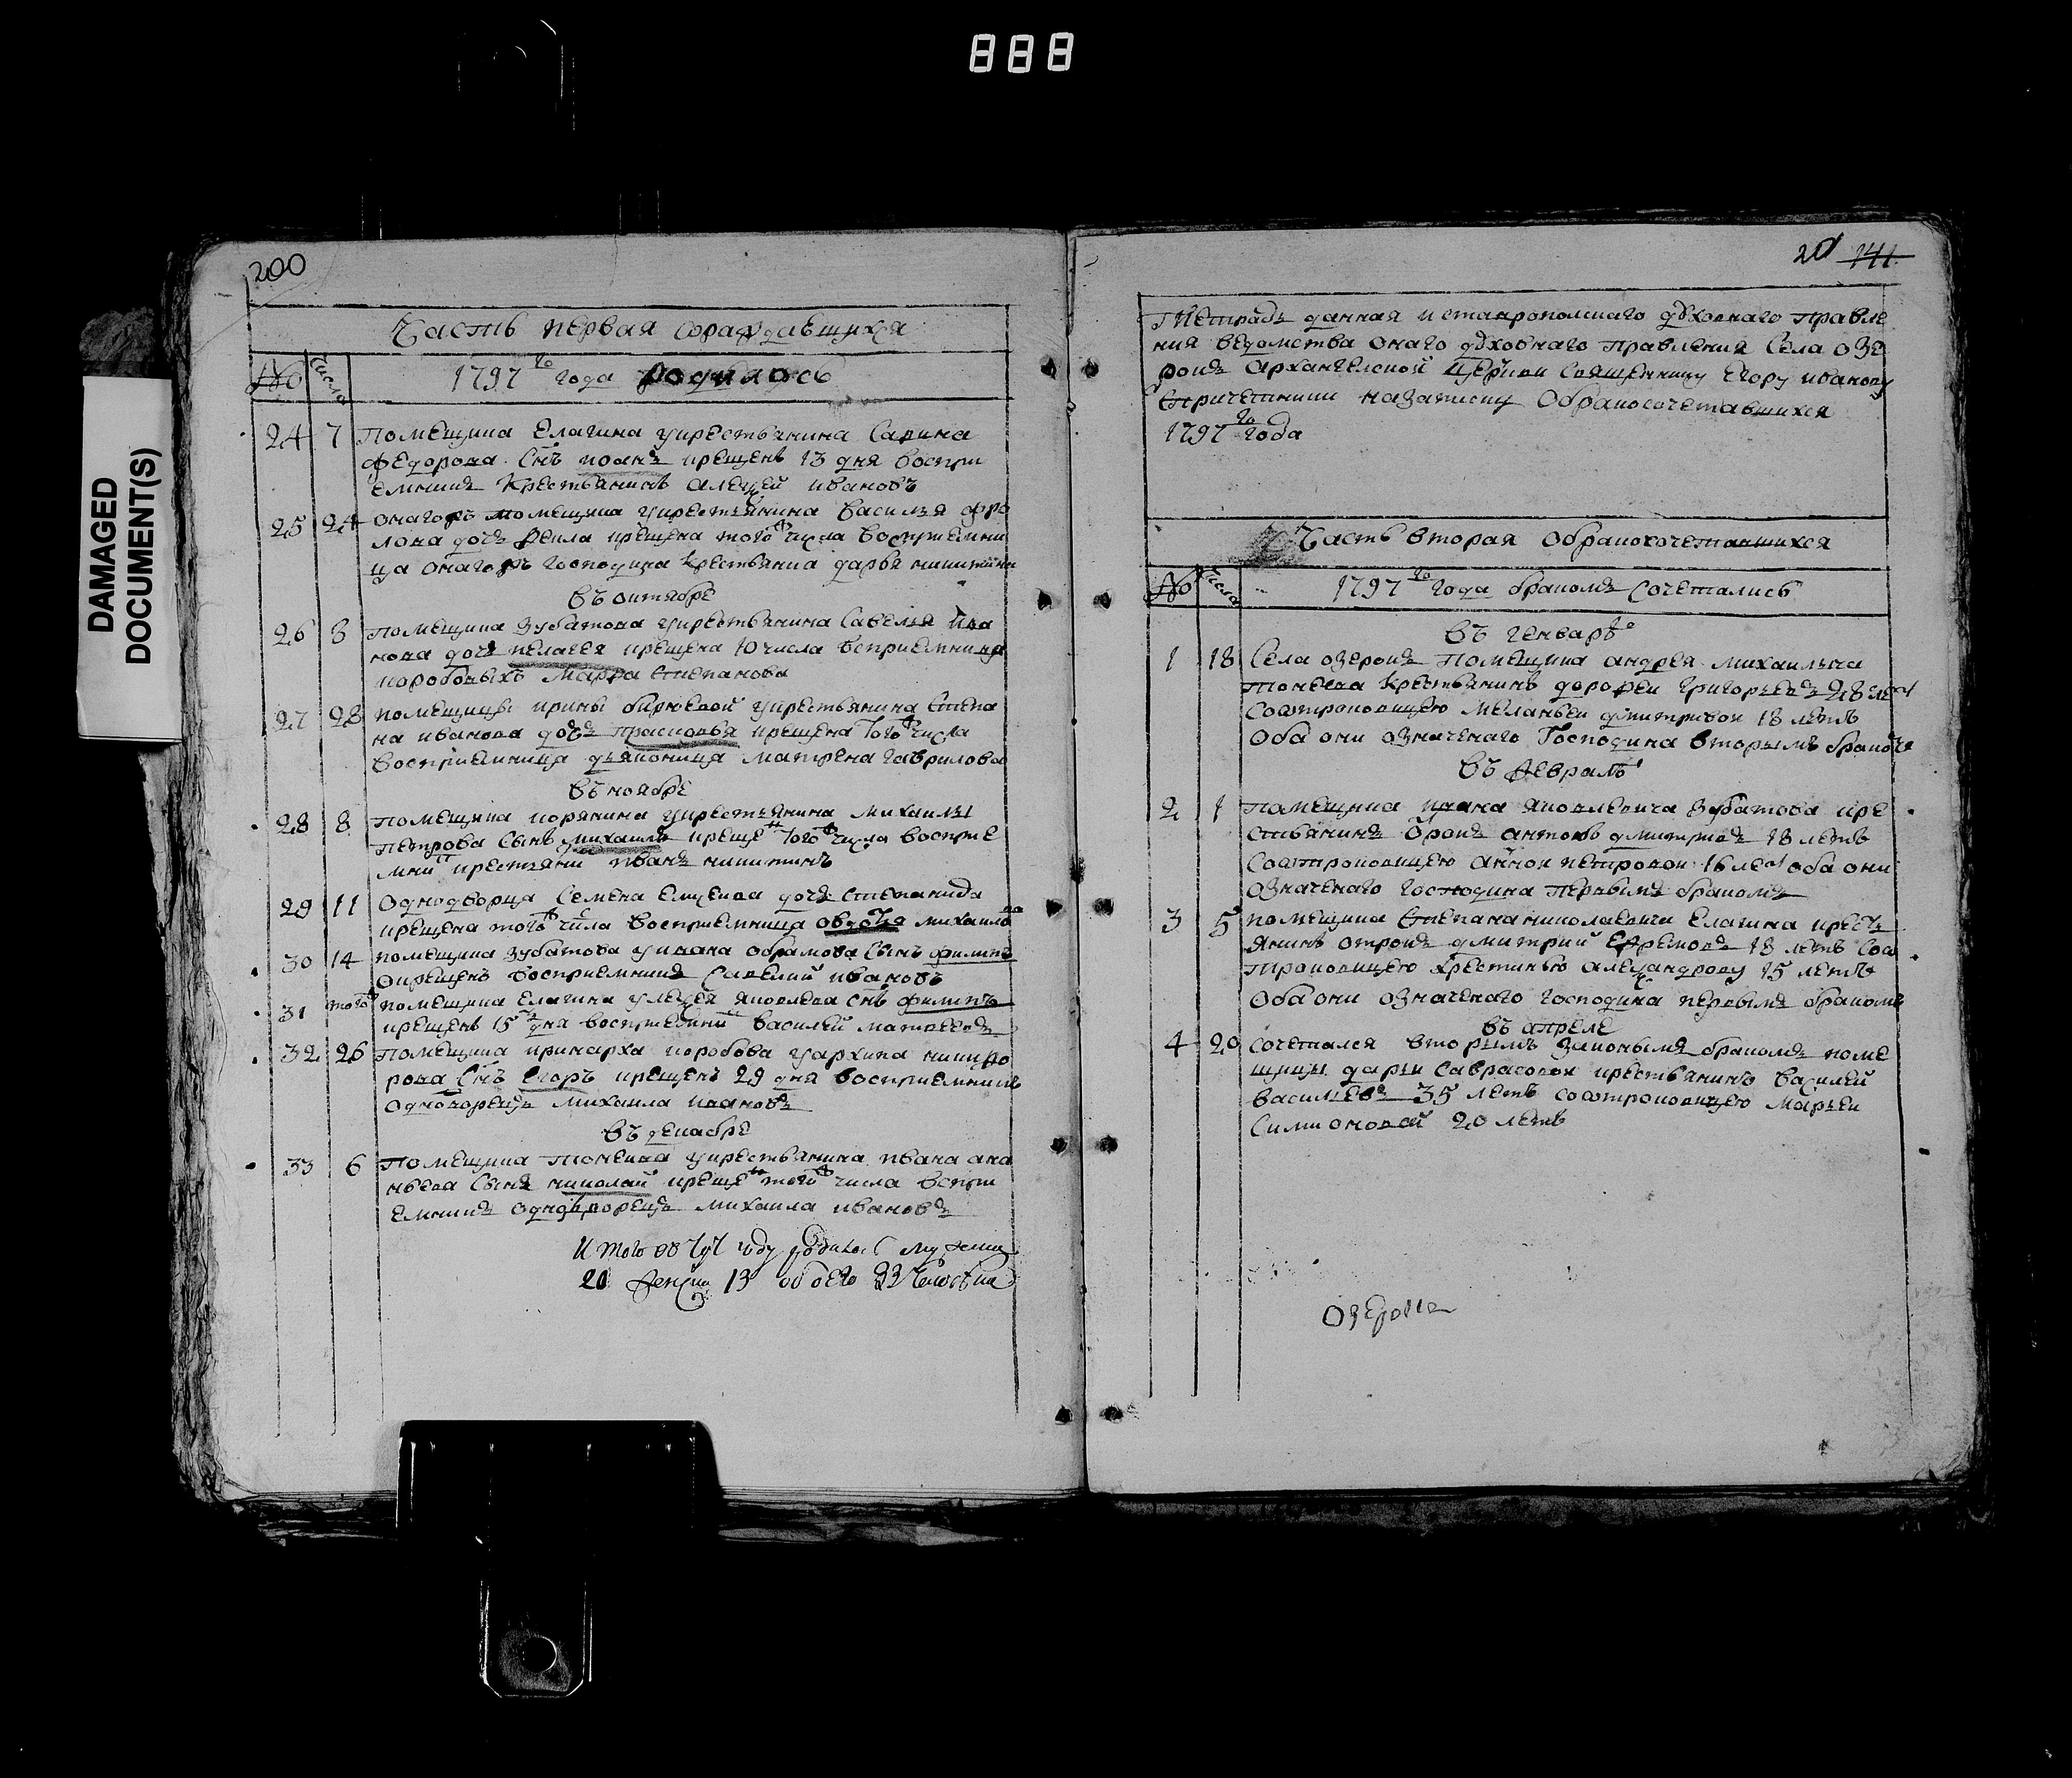 888
DAMAGED
DOCUMENT(S)
200
Часть первая ораждавшихся
№ Число 1797го года родилось
24 7 помещика Елагина укрестьянина Савина
федорова снъ иоанъ крещенъ 13 дня воспри
емникъ крестьянинъ алеѯей ивановъ
25 24 онагожъ помещика укрестьянина василья фро
лова дочь крещена того ж числа восприемни
ца онагожъ господина крестьянка дарья никитина
въ октябре
26 8 помещика зубатова укрестьянина Савелья ива
нова дочь пелагея крещена 10 числа восприемница
марфа степанова
27 28 помещицы ирины бирюевой укрестьянина степа
на иванова дочь прасковья крещена того ж числа
восприемница дьяконица матрена гаврилова
въ ноябре
28 8 помещика корякина укрестьянина михаилы
петрова сынъ михаилъ креще н того ж числа восприе
мник крестьяни н иванъ никитинъ
29 11 однодворца семена дочь степанида
крещена того ж числа восприемница авдотья михаилова
30 14 помещика зубатова уивана обрамова сынъ филипъ
окрещенъ восприемникъ савелий ивановъ
31 того ж помещика елагина улеѯея яковлева снъ филипъ
крещенъ 15 дня восприемник василей матвеевъ
32 26 помещика принарха коробова уархипа никифо
рова снъ егоръ крещенъ 29 дня восприемникъ
однодворецъ михаила ивановъ
въ декабре
33 6 помещика тонеева укрестьянина ивана ана
ньева сынъ николай креще н того ж числа воспри
емникъ однодворецъ михаила ивановъ
итого году родилос мужеска
20 женска 13 обоего 33 человека
201 141
тетрадь данная иставрополскаго духовнаго правле
ния ведомства онаго духовнаго правления села озе
рокъ архангелской церкви священнику егору иванову
спричетники назаписку обракосочетавшихся
1797го года
Часть вторая обракосочетавшихся
№ Число 1797го года бракомъ сочетались
въ генваре
1 18 села озерокъ помещика андрея михаилыча
тонеева крестьянинъ дорофеи григорьевъ 28 лет
соотроковицею меланьеи дмитривои 18 летъ
оба они означенаго господина вторымъ браком
въ феврале
2 1 помещика ивана яковлевича зубатова кре
стьянинъ отрокъ антонъ дмитриевъ 18 летъ
соотроковицею аннои петровои 16 лет оба они
означенаго господина первымъ бракомъ
3 5 помещика степана николаевича елагина кресть
янинъ отрокъ дмитрий ефремовъ 18 летъ соо
троковицею крестинью алеѯандрову 15 летъ
оба они означенаго господина первымъ бракомъ
въ апреле
4 20 сочетался вторымъ законнымъ бракомъ поме
щицы дарьи саврасовои крестьянинъ василей
васильевъ 35 летъ соотроковицею марьеи
симионовой 20 летъ
озерки